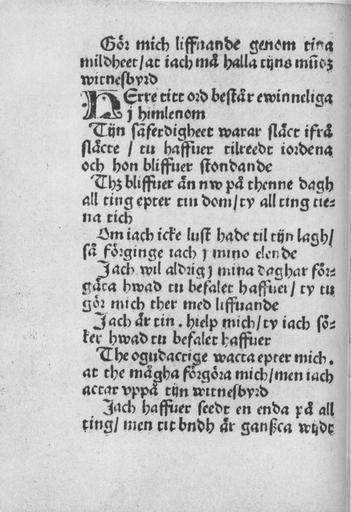 Gör mich liffuande genom tina
mildheet/ at iach må halla tijns mūdz
witnesbyrd
HErre titt ord består ewinneliga
j himlenom
Tijn säferdigheet warar släct ifrå
släcte / tu haffuer tilreedt iordena
och hon bliffuer stondande
Thz bliffuer än nw på thenne dagh
all ting epter tin dom/ ty all ting tie-
na tich
Om iach icke lust hade til tijn lagh/
så förginge iach j mino elende
Jach wil aldrig j mina daghar för-
gäta hwad tu befalet haffuer/ ty tu
gör mich ther med liffuande
Jach är tin . hielp mich/ ty iach sö-
ker hwad tu befalet haffuer
The ogudactige wacta epter mich .
at the mågha förgöra mich/ men iach
actar vppå tijn witnesbyrd
Jach haffuer seedt en enda på all
ting/ men tit budh är ganßca wijdt